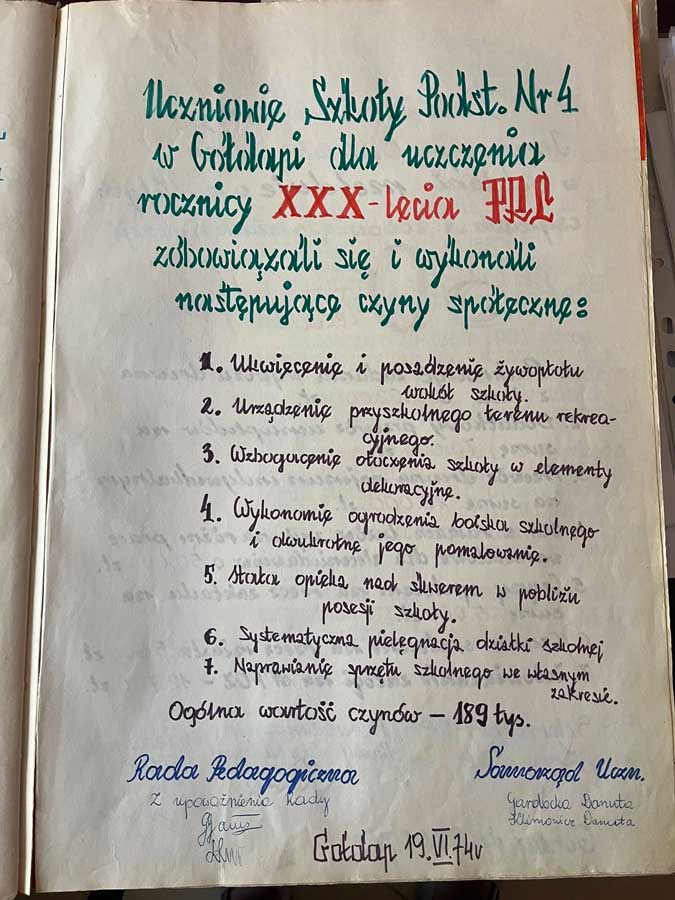 Uczniowie Szkoły Podst. Nr 4
w Gołdapi dla uczczenia
rocznicy XXX-lecia PRL
zobowiązali się i wykonali
następujące czyny społeczne:
1. Ukwiecenie i posadzenie żywopłotu
wokół szkoły.
2. Urządzenie przyszkolnego terenu rekrea-
cyjnego.
3. Wzbogacenie otoczenia szkoły w elementy
dekoracyjne.
4. Wykonanie ogrodzenia boiska szkolnego
i dwukrotne jego pomalowanie.
5. Stała opieka nad skwerem w pobliżu
posesji szkoły.
6. Systematyczna pielęgnacja działki szkolnej
7. Naprawianie sprzętu szkolnego we własnym
zakresie.
Ogólna wartość czynów – 189 tys.
Rada Pedagogiczna
Samorząd Uczn.
Z upoważnienia Rady
Gardocka Danuta
Klimowicz Danuta
Gołdap 19.VI.74r